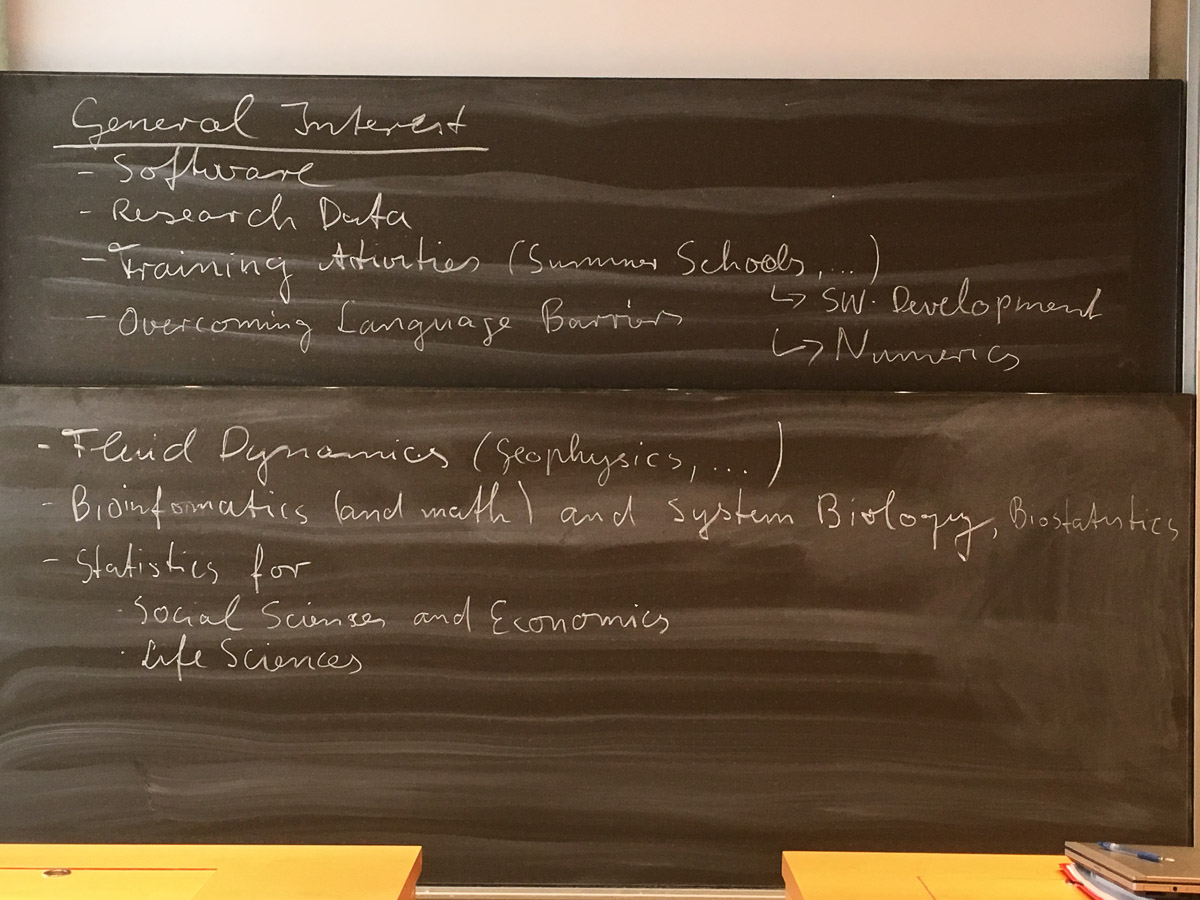 General Interest
- Software
- Research Data
- Training Ativities (Summer Schools, ...)
↳ SW. Development
- Overcoming Language Barriers
↳ Numerics
- Fluid Dynamics (Geophysics, ... )
- Bioinformatics (and math) and System Biology, Biostatistics
- Statistics for
· Social Sciences and Economics
· Life Sciences